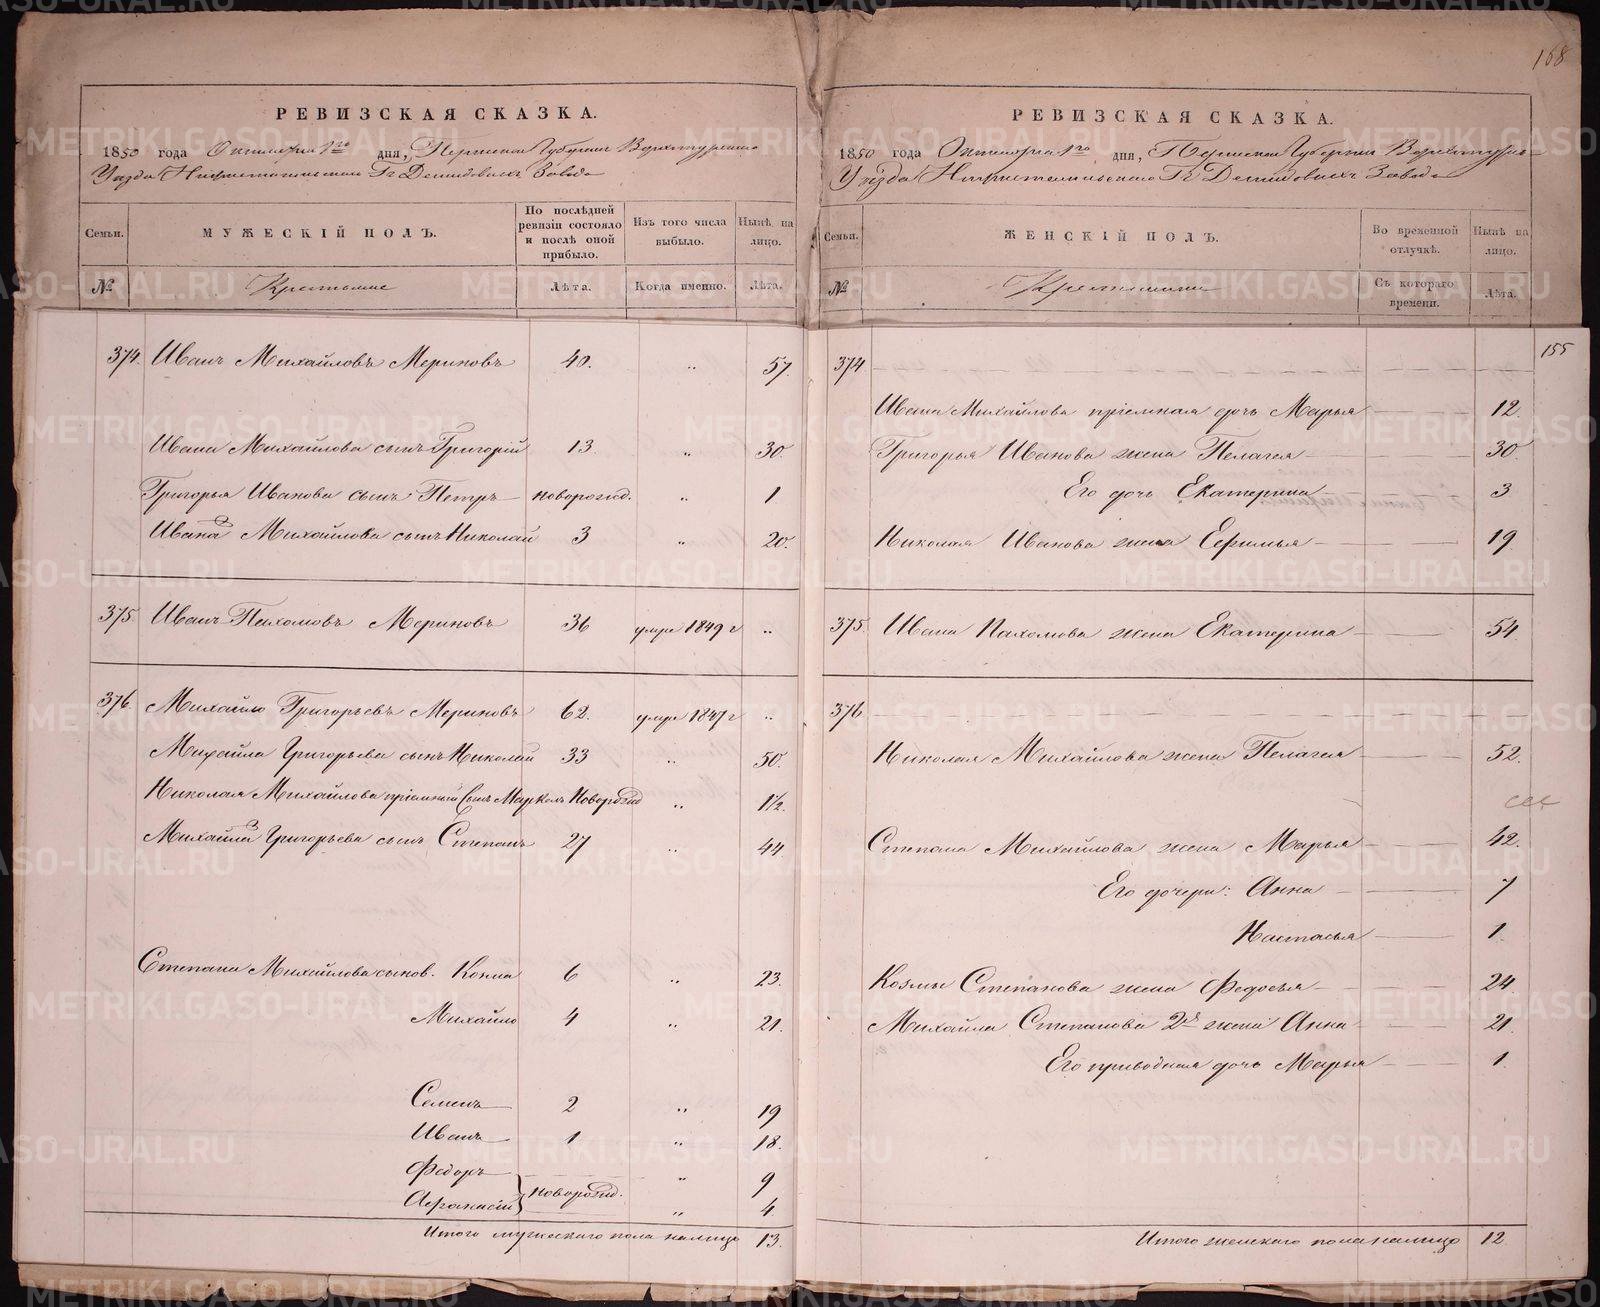 168
РЕВИЗСКАЯ СКАЗКА.
1850 года Октября 1го дня, Пермской Губернии Верхотурскаго
Уѣзда Нижнетагильскаго Гг Демидовыхъ Завода
Семьи.
МУЖЕСКІЙ ПОЛЪ.
По послѣдней ревизіи состояло и послѣ оной прибыло.
Изъ того числа выбыло.
Нынѣ на лицо.
№
Крестьяне
Лѣта.
Когда именно.
Лѣта.
374. Иванъ Михайловъ Мериновъ 40. „ 57.
Ивана Михайлова сынъ Григорій 13 „ 30.
Григорья Иванова сынъ Петръ новорожд. „ 1
Ивана Михайлова 2 сынъ Николай 3 „ 20.
375. Иванъ Пахомовъ Мериновъ 36 умре 1849 г „
376. Михайло Григорьевъ Мериновъ 62. умре 1847 г „
Михайла Григорьева сынъ Николай 33 „ 50.
Николая Михайлова пріемный сынъ Маркелъ Новорожд „ 1½
Михайла 2 Григорьева сынъ Степанъ 27 „ 44.
Степана Михайлова сынов. Козма 6 „ 23.
Михайло 4 „ 21.
Семенъ 2 „ 19
Иванъ 1 „ 18.
Федоръ новорожд. „ 9
Афанасій „ 4.
Итого мужескаго пола налицо 13.
РЕВИЗСКАЯ СКАЗКА.
1850 года Октября 1го дня, Пермской Губерніи Верхотурск-
Уѣзда Нижнетагильскаго Гг Демидовыхъ Завода
Семьи.
ЖЕНСКІЙ ПОЛЪ.
Во временной отлучкѣ.
Нынѣ на лицо.
№
Крестьянки
Съ котораго времени.
Лѣта.
155
374
Ивана Михайлова пріемная дочь Марья 12.
Григорья Иванова жена Пелагея 30.
Его дочь Екатерина 3
Николая Иванова жена Ефимья 19
375. Ивана Пахомова жена Екатерина 54.
376.
Николая Михайлова жена Пелагея 52.
Степана Михайлова жена Марья 42.
Его дочери: Анна 7
Настасья 1.
Козмы Степанова жена Федосья 24.
Михайла Степанова 2я жена Анна 21.
Его приводная дочь Марья 1.
Итого женскаго пола налицо 12
METRIKI.GASO-URAL.RU